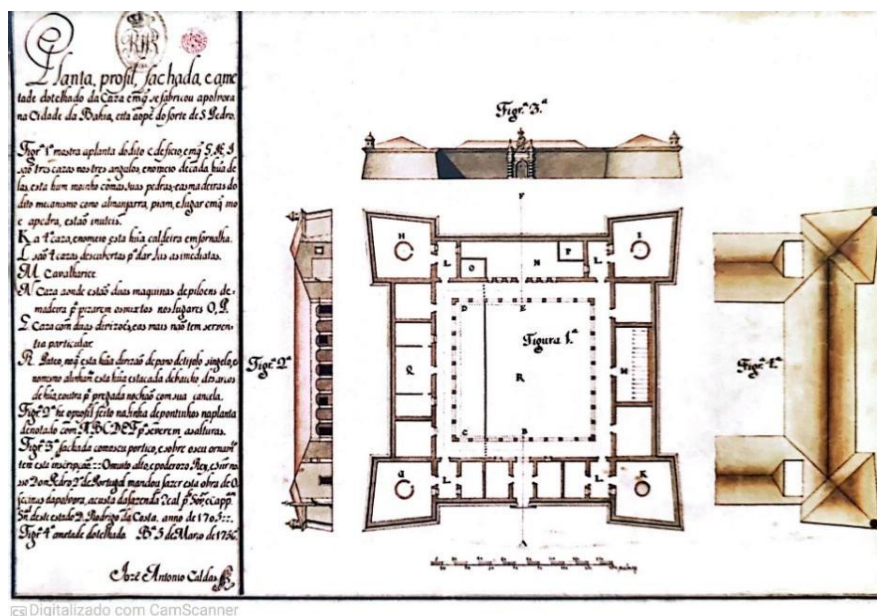 Planta, profil, fachada, e ame
tade do telhado da Caza emq̃ se fabricou apolvora
na Cidade da Bahia, esta ao pê do forte de S. Pedro.
Figr.ª 1ª mostra aplanta do dito edeficio, emq̃ G, H, I
saõ tres cazas nos tres angulos, enomeio decada hũa de
las, esta hum moinho cõ as suas pedras, eas madeiras do
dito mecanismo como almanjarra, piam, e lugar emq̃ mo
e apedra, estaõ inuteis.
K a 4ª caza, enomeio esta hũa caldeira em fornalha.
L saõ 4 cazas descubertas pª dar lus as imediatas.
M Cavalharice.
N Caza aonde estaõ duas maquinas de piloens de
madeira pª pizarem os mixtos nos lugares O, P.
Q Caza com duas divizoẽs, eas mais naõ tem serven
tia particular.
R Pateo, noq̃ esta hũa divizaõ de paredetijolo singelo, e
nomesmo alinham.to esta hũa estacada debaicho dos arcos
de hũa, e outra pª pregada no chaõ com sua cancela.
Figrª 2ª he o profil feito na linha de pontinhos na planta
denotado com A B C D E F pª severem as alturas.
Figrª 3ª fachada com o seu portico, e sobre o seu ornam.to
tem esta inscripçaõ :: O muito alto, e poderozo Rey, e Sir nos
so Dom Pedro 2º de Portugal mandou fazer esta obra de O
ficinas da polvora, a custa da fazenda Real pª Gor̃, e Capp.m
Gn̄l deste estado D. Rodrigo da Costa, anno de 1705 ::.
Figrª 4ª ametade do telhado. Bª 5 de Março de 1756.
Jozê Antonio Caldas
Figr.ª 3.ª
Figr.ª 2.ª
Figura 1.ª
Figr.ª 4.ª
F
H
I
L
O
N
P
L
D
E
Q
R
M
C
B
G
L
L
K
A
CS Digitalizado com CamScanner